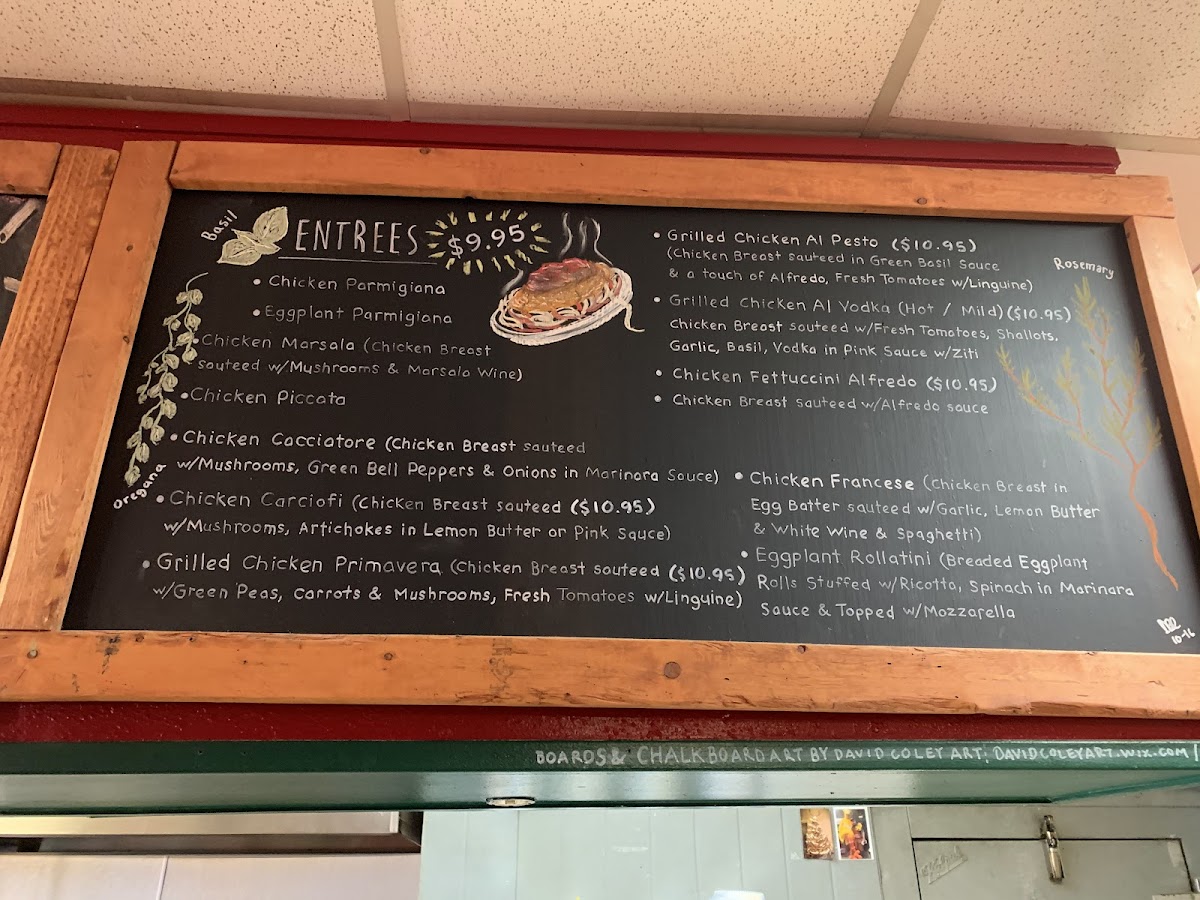 Basil
ENTREES $9.95
• Chicken Parmigiana
• Eggplant Parmigiana
• Chicken Marsala (Chicken Breast
sauteed w/Mushrooms & Marsala Wine)
• Chicken Piccata
• Chicken Cacciatore (Chicken Breast sauteed
w/Mushrooms, Green Bell Peppers & Onions in Marinara Sauce)
• Chicken Carciofi (Chicken Breast sauteed ($10.95)
w/Mushrooms, Artichokes in Lemon Butter or Pink Sauce)
• Grilled Chicken Primavera (Chicken Breast sauteed ($10.95)
w/Green Peas, Carrots & Mushrooms, Fresh Tomatoes w/Linguine)
Oregana
• Grilled Chicken Al Pesto ($10.95)
(Chicken Breast sauteed in Green Basil Sauce
& a touch of Alfredo, Fresh Tomatoes w/Linguine)
• Grilled Chicken Al Vodka (Hot / Mild) ($10.95)
Chicken Breast sauteed w/Fresh Tomatoes, Shallots,
Garlic, Basil, Vodka in Pink Sauce w/Ziti
• Chicken Fettuccini Alfredo ($10.95)
• Chicken Breast sauteed w/Alfredo sauce
• Chicken Francese (Chicken Breast in
Egg Batter sauteed w/Garlic, Lemon Butter
& White Wine & Spaghetti)
• Eggplant Rollatini (Breaded Eggplant
Rolls Stuffed w/Ricotta, Spinach in Marinara
Sauce & Topped w/Mozzarella
Rosemary
10-16
BOARDS & CHALKBOARD ART BY DAVID COLEY ART: DAVIDCOLEYART.WIX.COM/